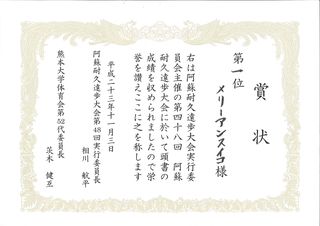 賞状
第一位
メリーアンスイコ様
右は阿蘇耐久遠歩大会実行委
員会主催の第四十八回 阿蘇
耐久遠歩大会に於いて頭書の
成績を収められましたので栄
誉を讃えここに之を称します
平成二十三年十一月三日
阿蘇耐久遠歩大会第48回実行委員長
相川 航平
熊本大学体育会第52代委員長
茨木 健